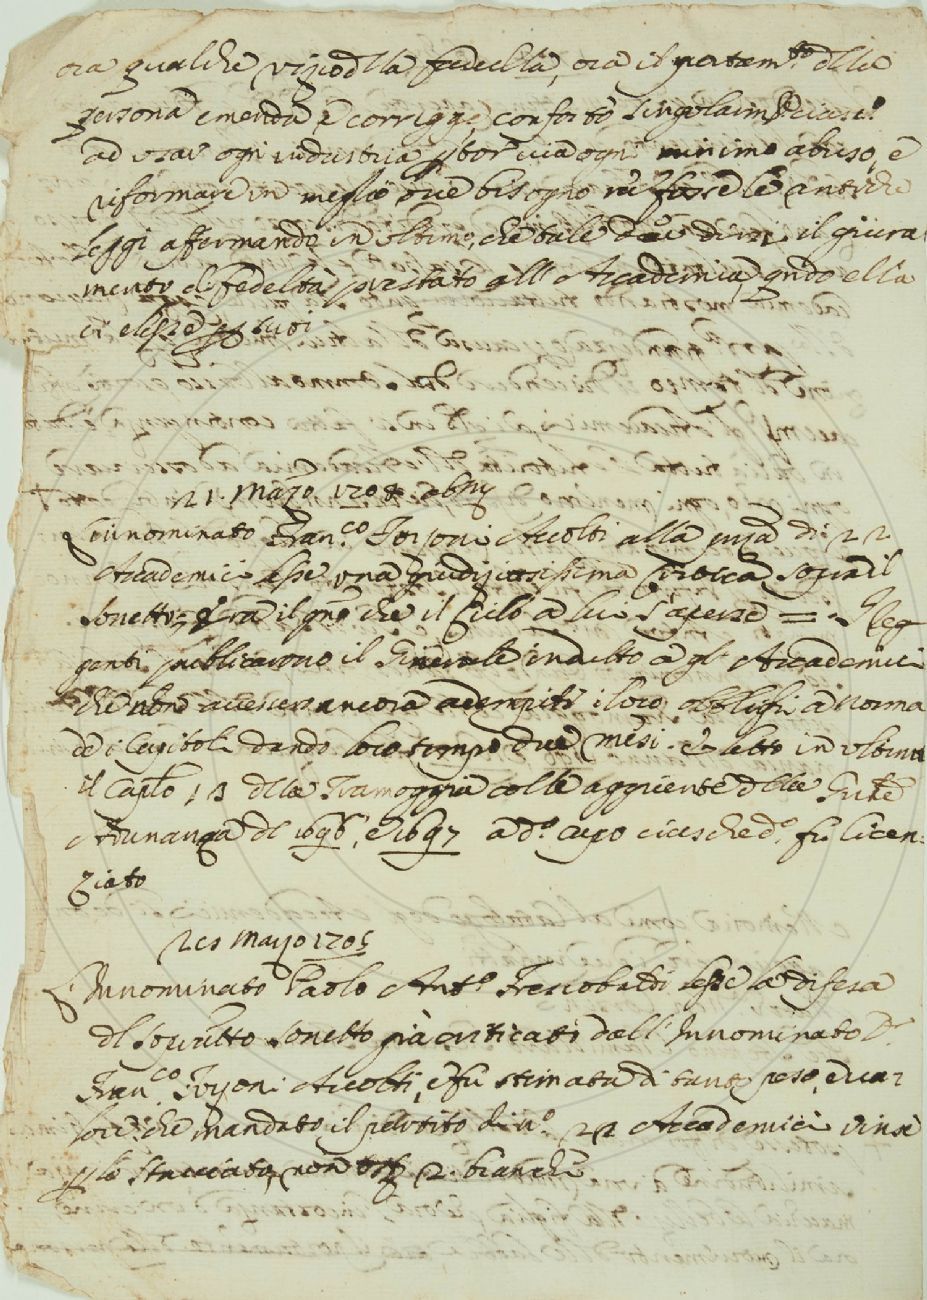 ora qualche vizio d'lla favella, ora il portam.to d'lla
persona emenda e corregge, confortò singolarm.te ciasc.o
ad usar ogni industria p tor via ogni minimo abuso, e
riformare in meglio ove bisogno ne fosse le antiche
leggi affermando in ultimo, che tale
il giura-
mento di fedeltà prestato all'Accademia qndo ella
ci elesse p suoi
21. Marzo 1704
L'Innominato Fran.co Forzoni Accolti alla pnza di 22
Accademici lesse una giudiziosissima Critica sopra il
sonetto = Era il gno che il Cielo a lui s'aperse = I Reg-
genti publicarono il Generale indulto a gl'Accademici
che non avessero ancora adempiti i loro obblighi a norma
de i Capitoli dando loro tempo due mesi. E letto in ultimo
il Caplo 13 della Tramoggia colle aggiunte delle
Adunanza dl 1696, e 1697 a d.o capo
fu licen-
ziato
Maggio 1705
L'Innominato Paolo Ant.o Frescobaldi lesse la difesa
dl sovritto sonetto già criticato dall'Innominato
Fran.co Forzoni Accolti, e fu stimata di tanto peso, e va-
lore che mandato il partito di n.o 22 Accademici vinse
p lo stacciato, non 2. bianche